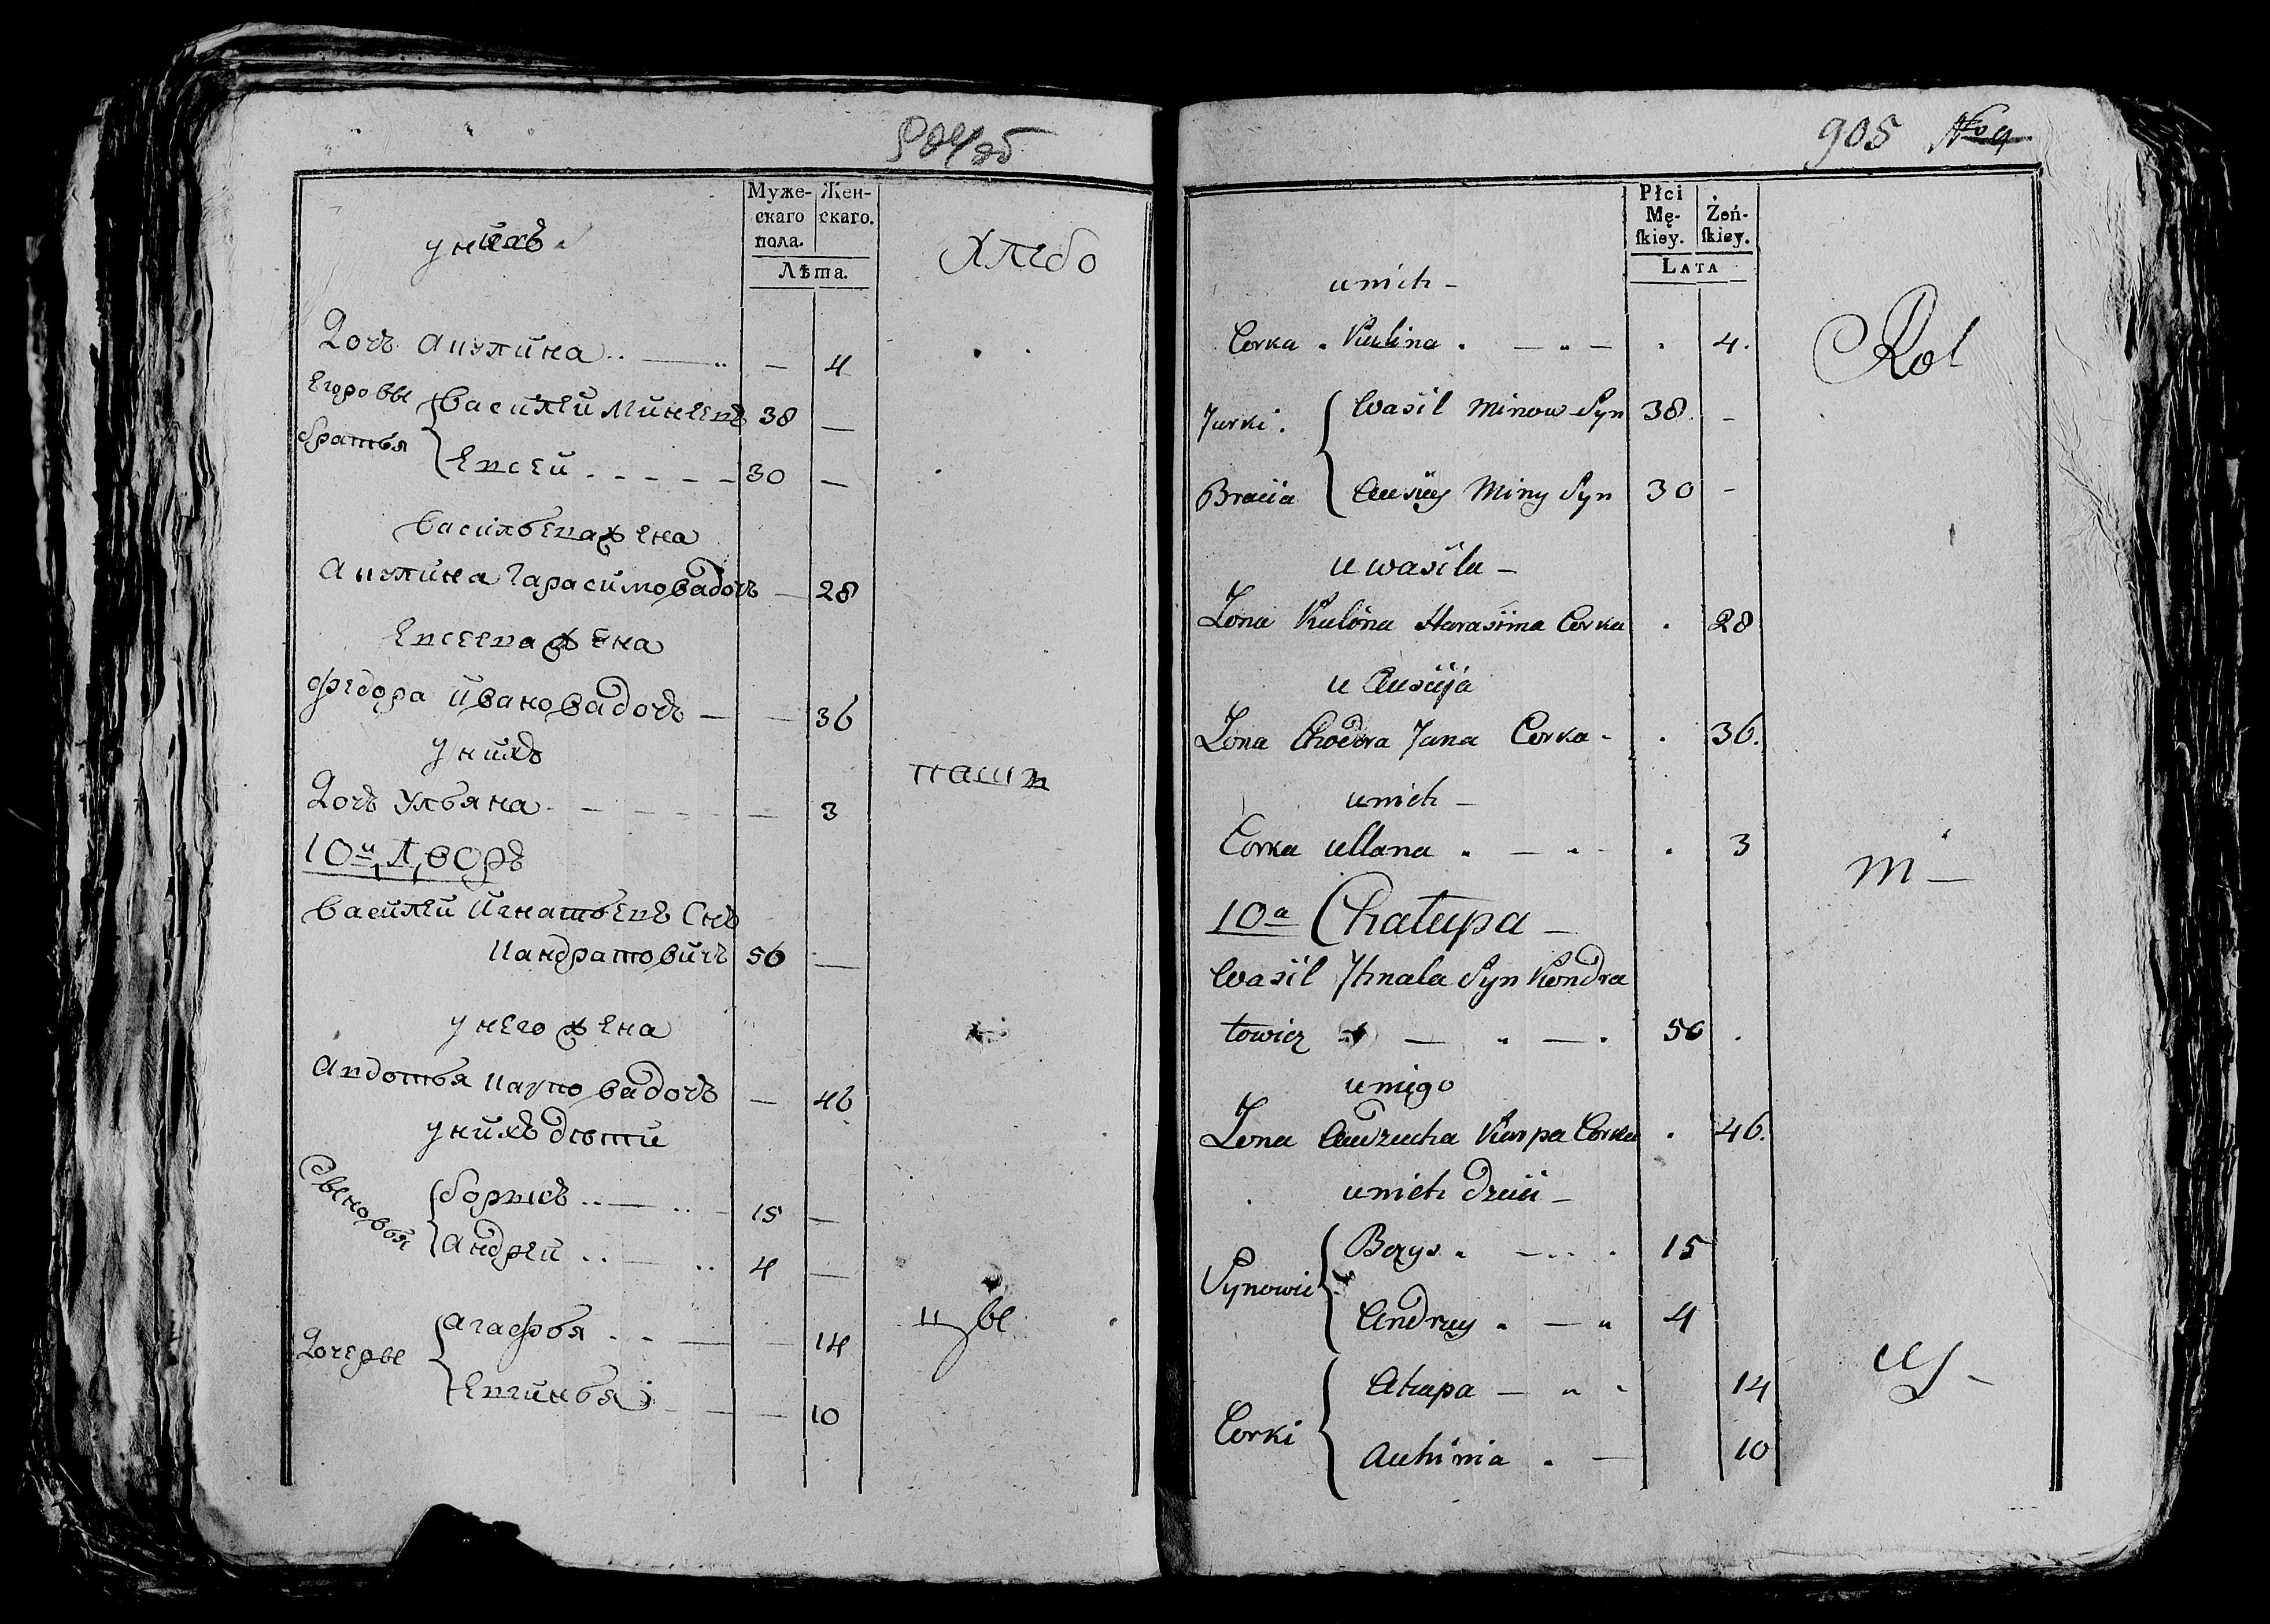 904об
Муже-
скаго
пола.
Жен-
скаго.
Лѣта.
у нихъ
Хлебо
Дочъ Акулина — 4
Егоровы
братья
Василей Минеевъ 38 —
Евсей 30 —
Васильева жена
Акулина Гарасимова дочъ — 28
Евсеева жена
Федора Иванова дочъ — 36
у нихъ
паш
Дочъ Ульяна — 3
10й Дворъ
Василей Игнатьевъ Снъ
Кандратовичъ 56 —
у него жена
Авдотья Карпова дочъ — 46
у нихъ дѣти
Сыновья
Борисъ 15 —
Андрей 4 —
цы
Дочеры
Агафья — 14
Евгинья — 10
905 No 9
Płci
Mę-
ſkiey.
Żeń-
ſkiey.
LATA
u nich —
Rol
Corka Kulina 4.
Jurki
Bracia
Wasil Minow Syn 38. —
Ausiey Miny Syn 30 —
u Wasila —
Zona Kulina Harasima Corka 28
u Ausieja
Zona Chodora Jana Corka 36.
u nich —
Corka Ullana 3
m —
10a Chałupa —
Wasil Ihnata Syn Kondra
towicz 56
u niego
Zona Audzucha Karpa Corka 46.
u nich dzieci —
Synowie
Borys 15
Andrey 4
cy —
Corki
Ahapa — 14
Auhinia — 10